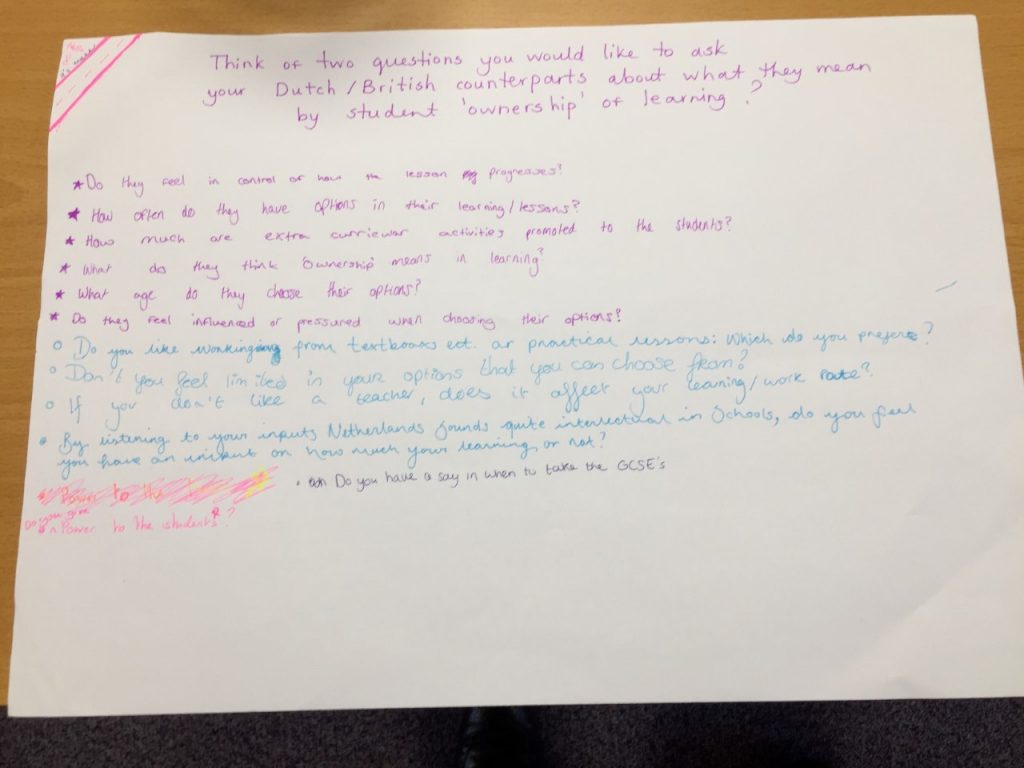 Think of two questions you would like to ask
your Dutch/British counterparts about what they mean
by student 'ownership' of learning?
* Do they feel in control of how the lesson progresses?
* How often do they have options in their learning/lessons?
* How much are extra curricular activities promoted to the students?
* What do they think 'ownership' means in learning?
* What age do they choose their options?
* Do they feel influenced or pressured when choosing their options?
o Do you like working from textbooks ect. or practical lessons: Which do you prefere?
o Don't you feel limited in your options that you can choose from?
o If you don't like a teacher, does it affect your learning/work rate?
• By listening to your inputs Netherlands sounds quite intellectual in Schools, do you feel
you have an on how much your learning or not?
• Do you have a say in when to take the GCSE's
Power to the
Do you give
Power to the students?